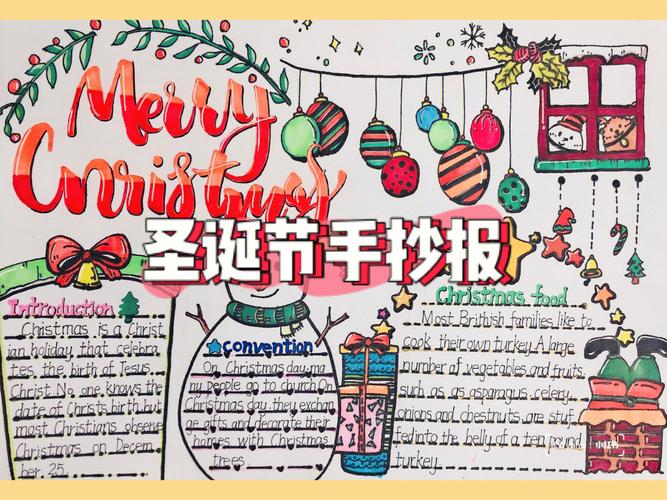 Merry
Christmas
圣诞节手抄报
Introduction
Christmas is a Christ
ian holiday that celebra
tes the birth of Jesus
Christ. No one knows the
date of Christs birth. but
most Christians observe
Christmas on Decem
ber 25
convention
On Christmas day. ma
ny people go to church. On
Christmas day. they exchan
ge gifts and decorate their
homes with Christmas
trees
Christmas food
Most Brithish families like to
cook their own turkey. A large
number of vegetables and fruits.
such as as asparagus. celery.
onions and chestnuts. are stuf
fed into the belly of a ten pound
turkey.
小红书